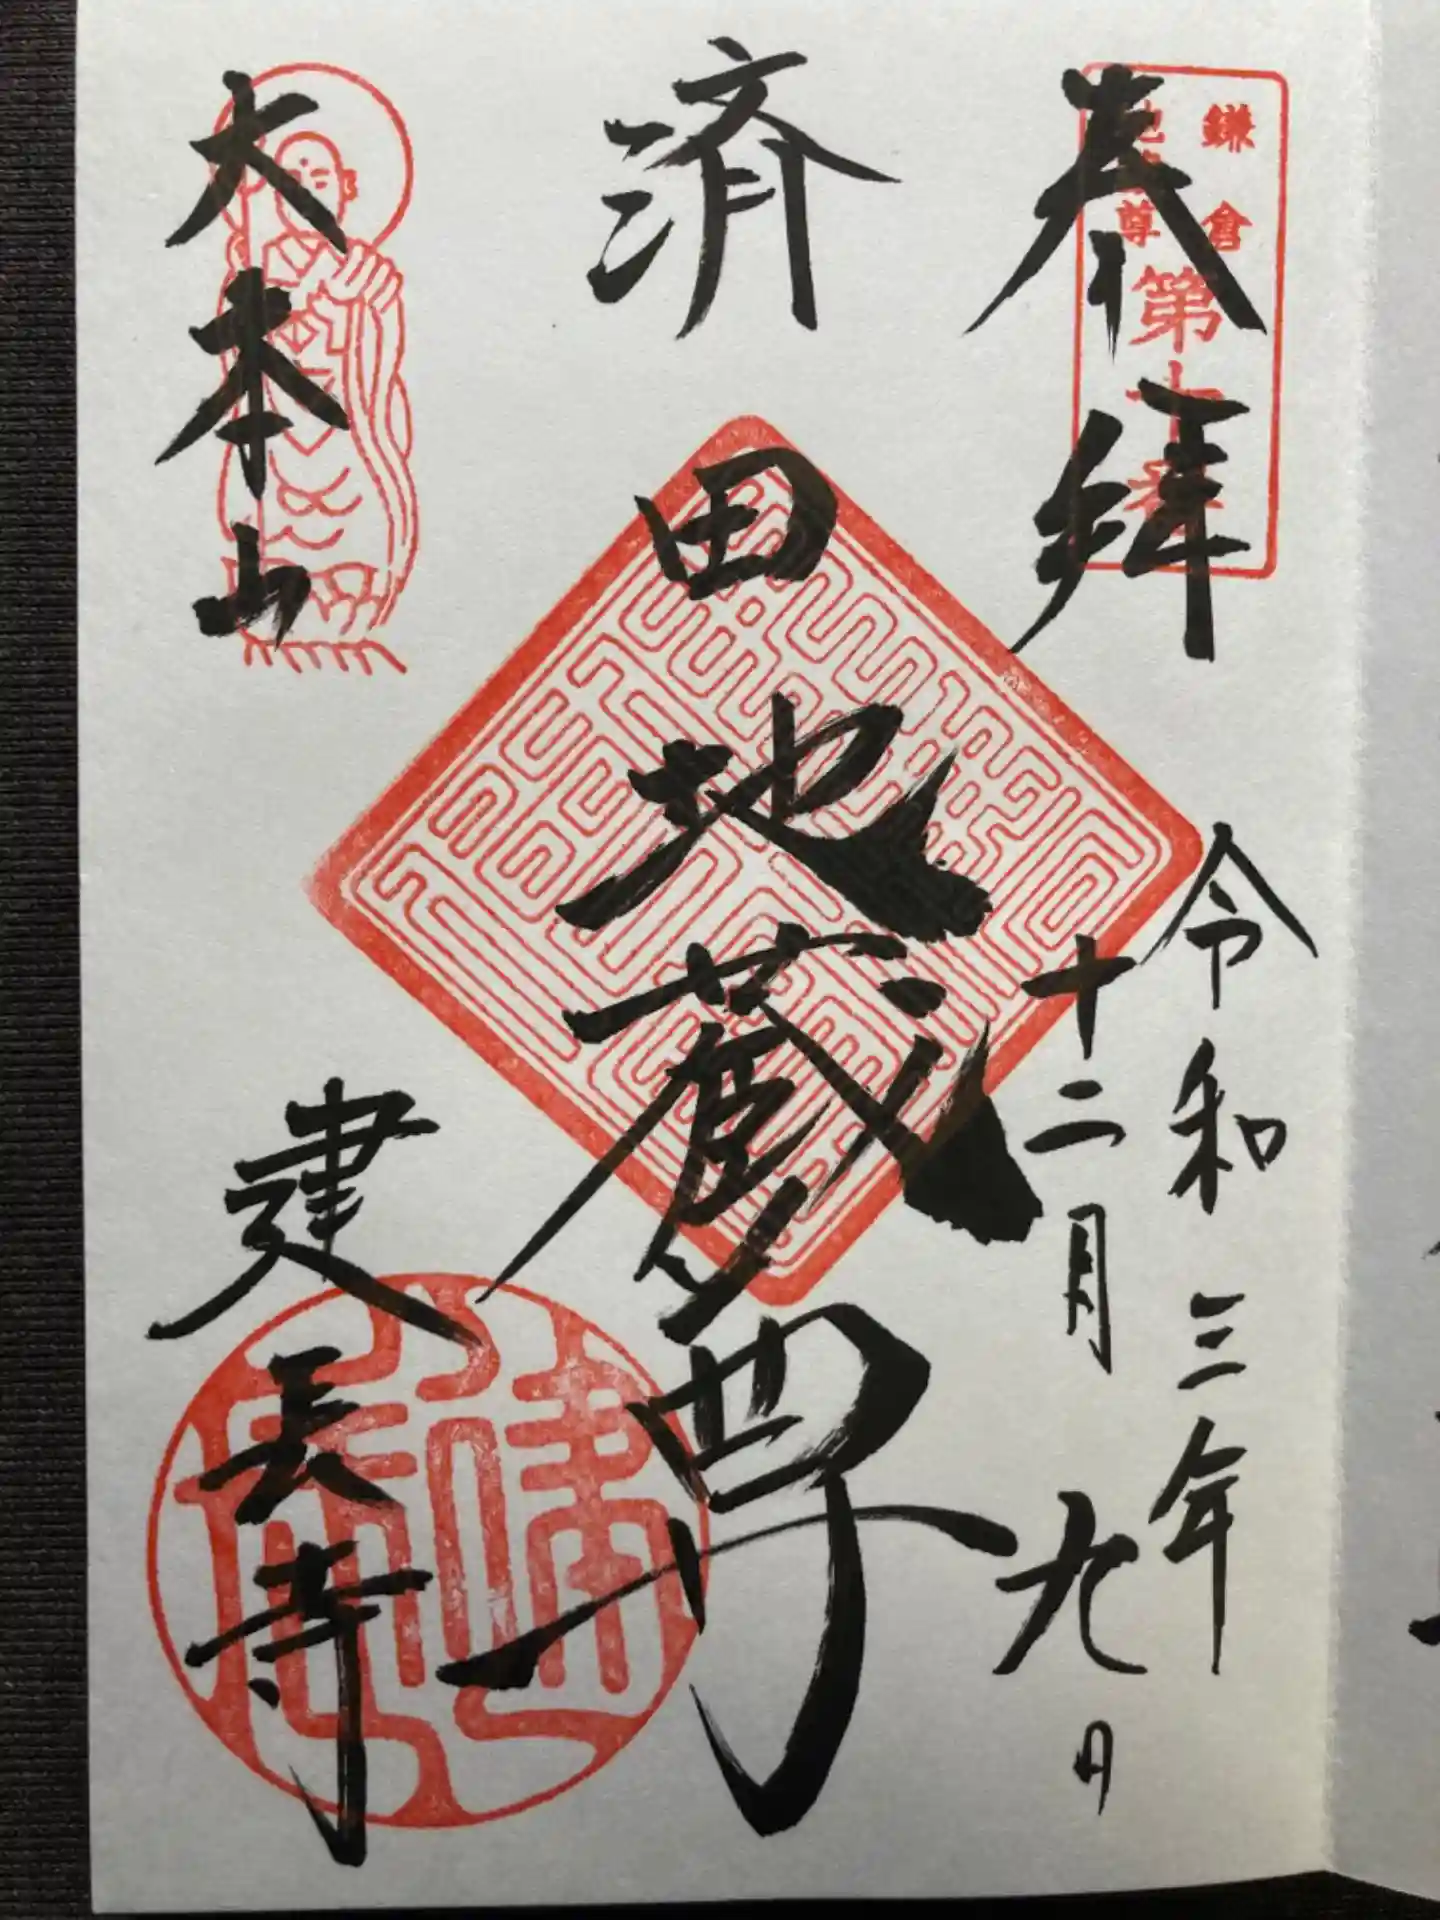 奉拝
鎌倉
地蔵尊
第十番
令和三年
十二月九日
済田地蔵尊
大本山
建長寺